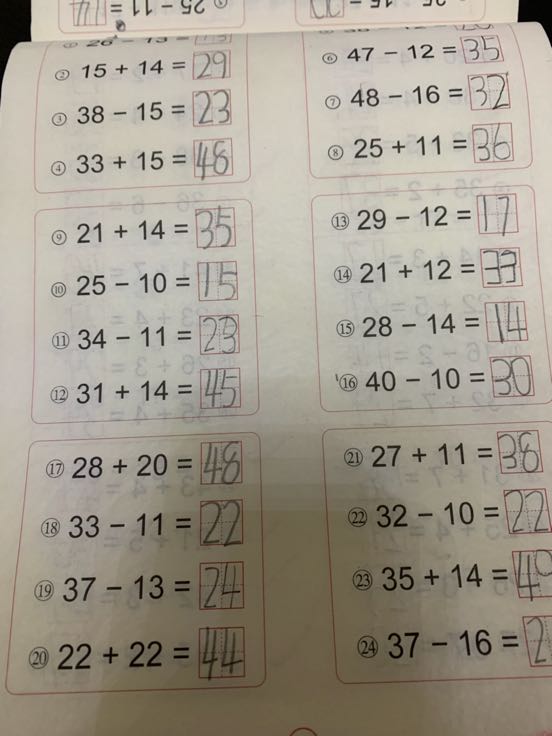 25 - 11 =
② 15 + 14 = 29
③ 38 - 15 = 23
④ 33 + 15 = 48
⑥ 47 - 12 = 35
⑦ 48 - 16 = 32
⑧ 25 + 11 = 36
⑨ 21 + 14 = 35
⑩ 25 - 10 = 15
⑪ 34 - 11 = 23
⑫ 31 + 14 = 45
⑬ 29 - 12 = 17
⑭ 21 + 12 = 33
⑮ 28 - 14 = 14
⑯ 40 - 10 = 30
⑰ 28 + 20 = 48
⑱ 33 - 11 = 22
⑲ 37 - 13 = 24
⑳ 22 + 22 = 44
㉑ 27 + 11 = 38
㉒ 32 - 10 = 22
㉓ 35 + 14 = 4
㉔ 37 - 16 = 2